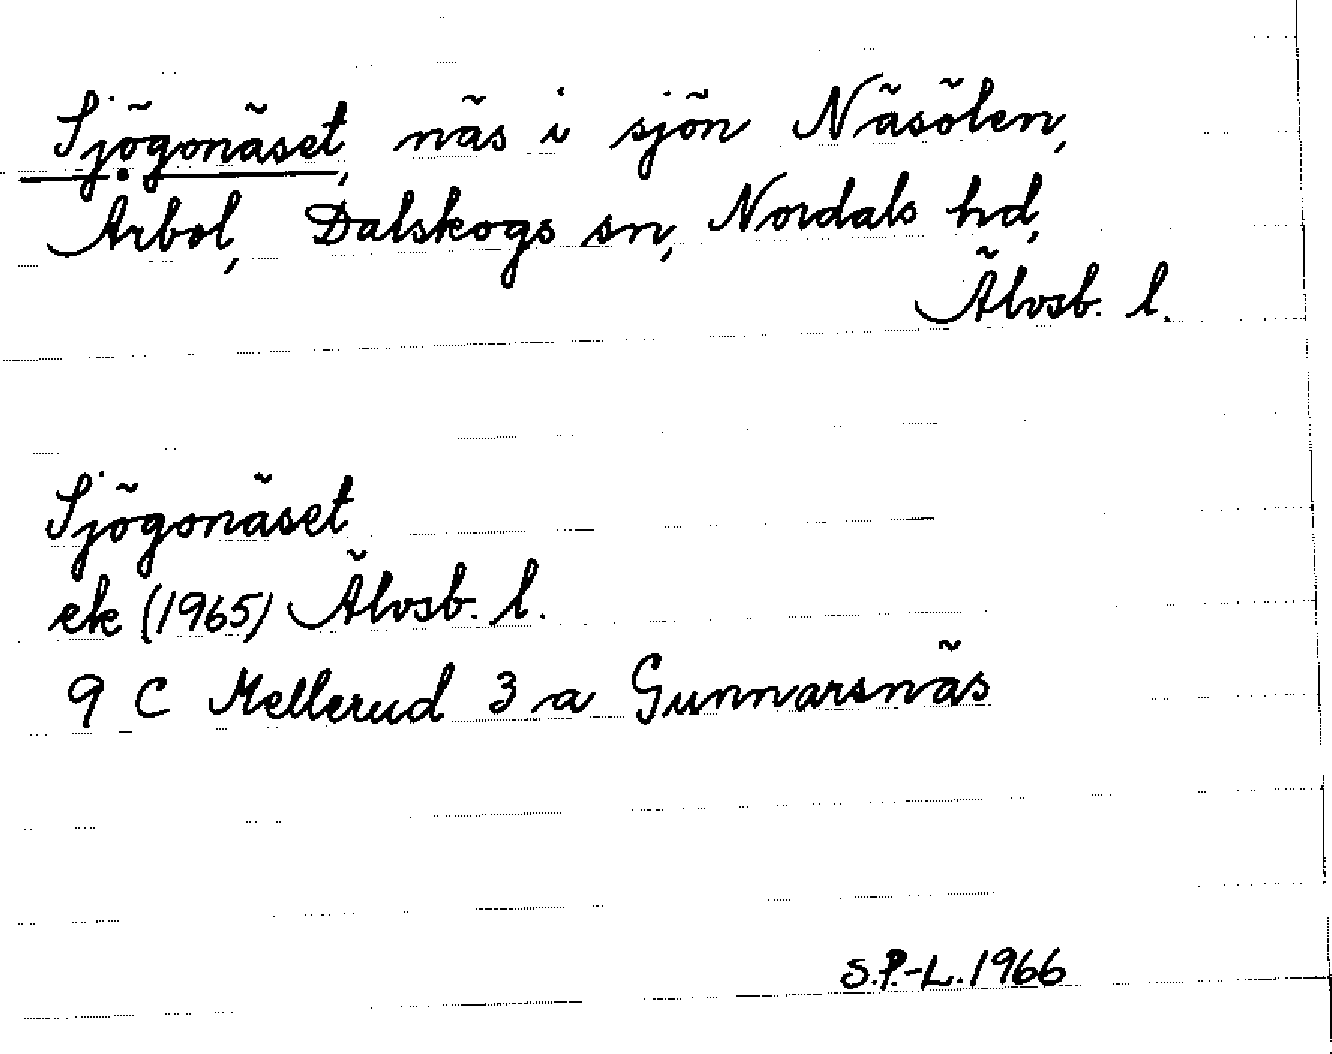 Sjögonäset, näs i sjön Näsölen,
Arbol, Dalskogs sn, Nordals hd,
Älvsb. l.
Sjögonäset
ek (1965) Älvsb. l.
9 C Mellerud 3 a Gunnarsnäs
S.P.-L. 1966